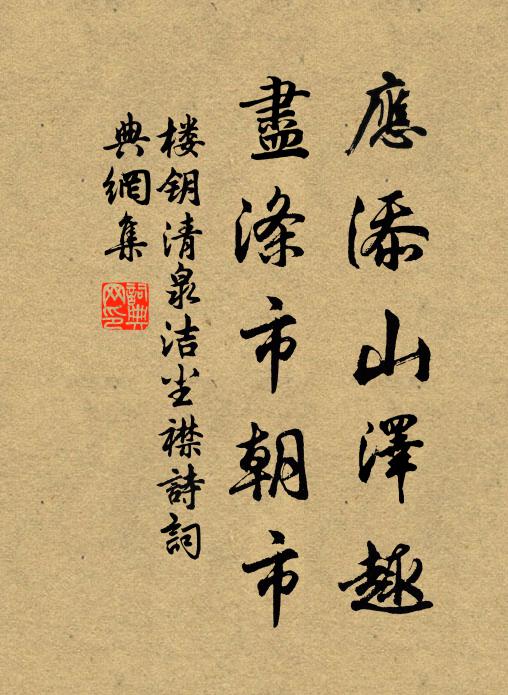 應添山澤趣
盡滌市朝市
楼钥清泉洁尘襟詩詞
典網集
詞典网印